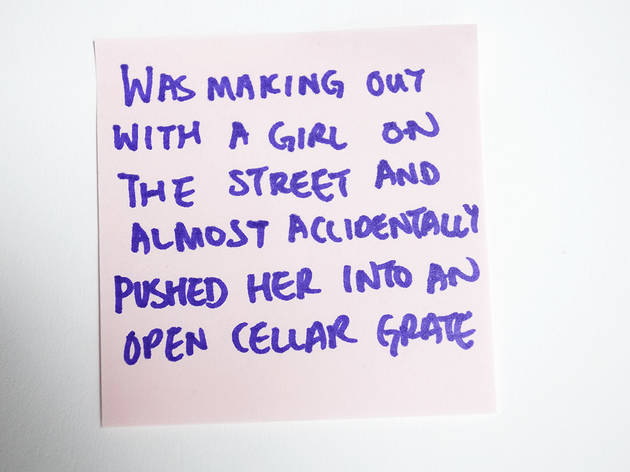 WAS MAKING OUT
WITH A GIRL ON
THE STREET AND
ALMOST ACCIDENTALLY
PUSHED HER INTO AN
OPEN CELLAR GRATE